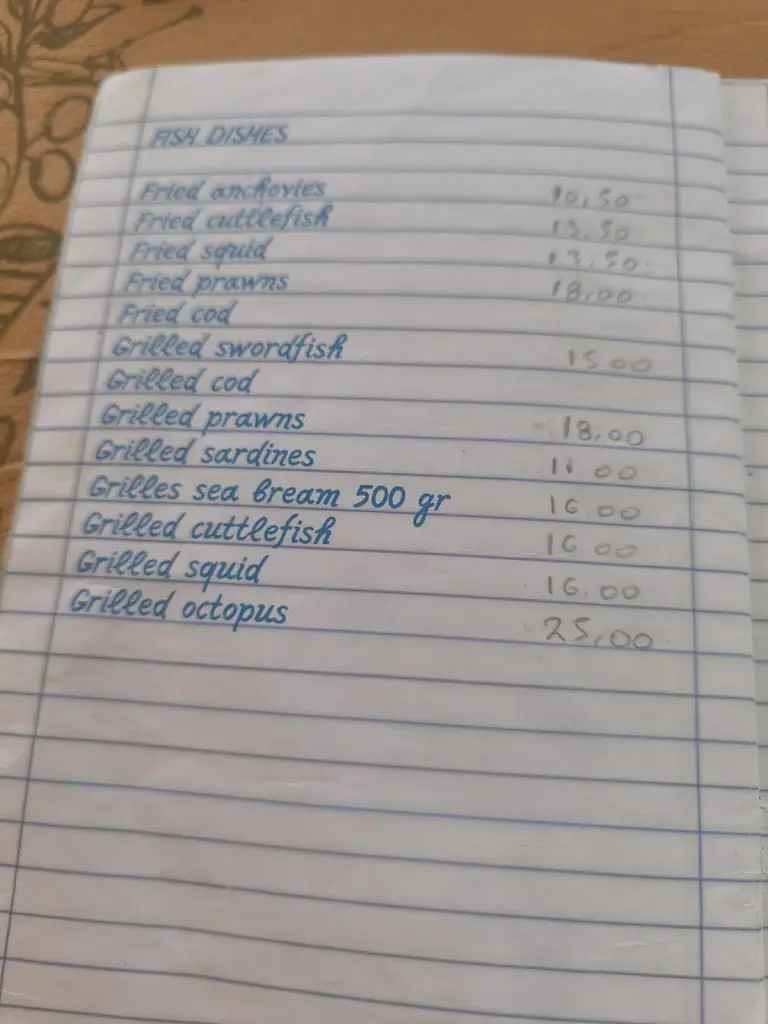 FISH DISHES
Fried anchovies 10,50
Fried cuttlefish 13.50
Fried squid 13,50
Fried prawns 18,00
Fried cod
Grilled swordfish 15 00
Grilled cod
Grilled prawns 18,00
Grilled sardines 11 00
Grilles sea bream 500 gr 16 00
Grilled cuttlefish 16 00
Grilled squid 16.00
Grilled octopus 25,00